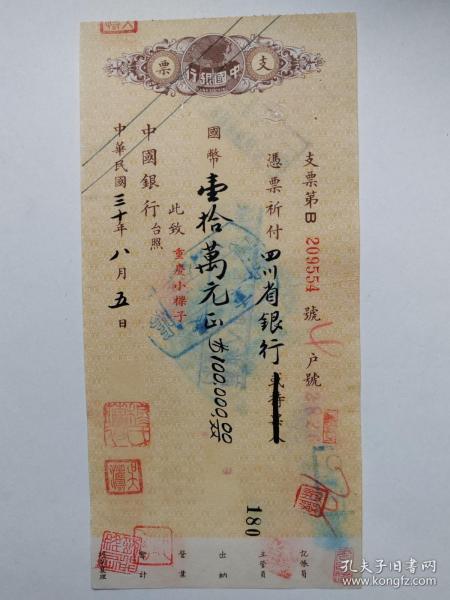 支票
中國銀行
支票第B 209554 號 戶號
憑票祈付 四川省銀行 或持票人
國幣 壹拾萬元正 $100,000.00
此致
中國銀行 台照
重慶小樑子
中華民國三十年八月五日
180
記帳員
主管員
出納
營業
會計
孔夫子旧书网